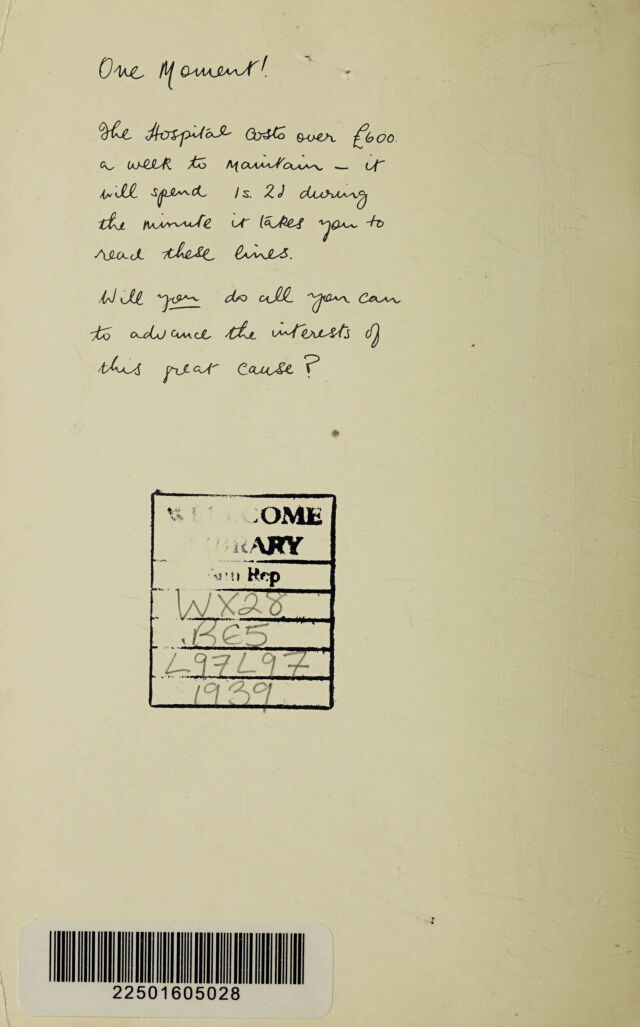 One Moment!
The Hospital costs over £600
a week to maintain — it
will spend 1s. 2d during
the minute it takes you to
read these lines.
Will you do all you can
to advance the interests of
this great cause?
WELLCOME
LIBRARY
Ann Rep
WX28
.BE5
L97L97
1939
22501605028